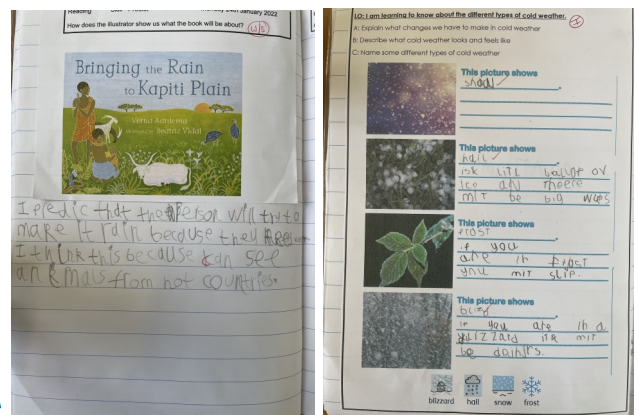 Reading
January 2022
How does the illustrator show us what the book will be about?
Bringing the Rain
to Kapiti Plain
Verna Aardema
Beatriz Vidal
I predic that the Person will try to
make it rain because they
I think this because can see
an emals from hot countries.
LO: I am learning to know about the different types of cold weather.
I
A: Explain what changes we have to make in cold weather
B: Describe what cold weather looks and feels like
C: Name some different types of cold weather
This picture shows
This picture shows
hail
litl ov
ice and
mit be big
This picture shows
frost
if you
are in frost
you mit slip.
This picture shows
if you are in a
mit
be
blizzard hail snow frost